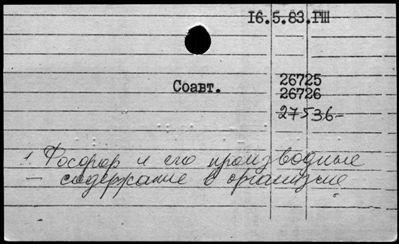 16.5.83.ГШ
Соавт. 26725
26726
27536-
1. Фосфор и его производные
— содержание в организме